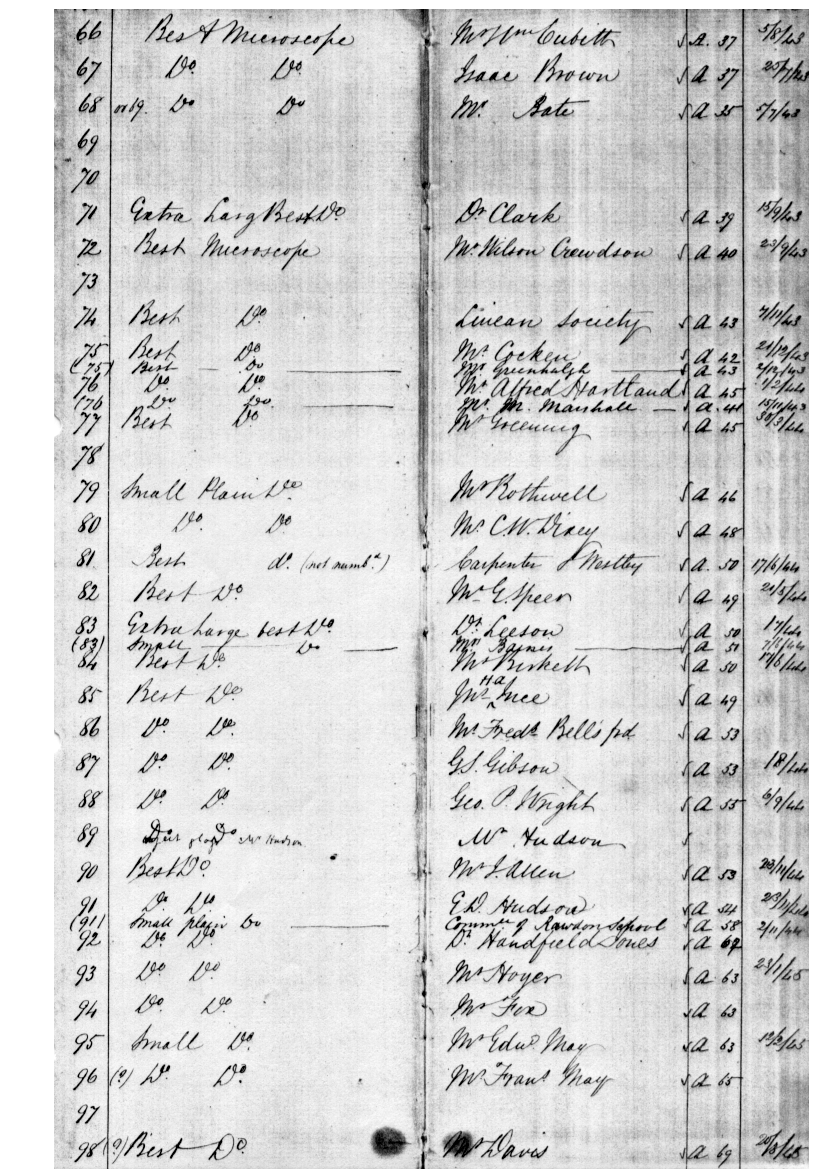 66 Best Microscope Mr Wm Cubitt A. 37 5/8/43
67 Do Do Isaac Brown A 37 25/7/43
68 or 69. Do Do Mr. Bate A 35 5/7/43
69
70
71 Extra Larg Best Do Dr Clark A 39 15/9/43
72 Best Microscope Mr Wilson Crewdson A 40 23/9/43
73
74 Best Do Linean Society A 43 7/11/43
75 Best Do Mr Cocken A 42 21/12/43
(75) Best Do Mr Greenhalgh A 43 2/12/43
76 Do Do Mr Alfred Hartland A 45 1/2/44
176 Do Do Mr. M. Marshall A. 41 15/11/43
77 Best Do Mr Greening A 45 30/3/44
78
79 Small Plain Do Mr Rothwell A 46
80 Do. Do Mr C.W. Dixey A 48
81 Best do. (not numbd) Carpenter & Westley A. 50 17/6/44
82 Best Do Mr G. Speer A 49 21/5/44
83 Extra Large best Do Dr. Leeson A 50 17/44
(83) Small Do Mr Baines A 51 7/6/44
84 Best Do Mr Birkett A 50 17/6/44
85 Best Do. Mr Ha Ince A 49
86 Do Do. Mr Fredk Bell's pd A 53
87 Do Do. G.S. Gibson A 53 18/44
88 Do Do. Geo. P. Wright A 55 6/9/44
89 Do Mr Hudson Mr Hudson
90 Best Do. Mr J. Allen A 53 23/11/44
91 Do Do E.D. Hudson A 54 23/11/44
(91) Small plain Do Commee of Rawdon School A 58 2/11/44
92 Do Do Dr Handfield Jones A 62
93 Do Do. Mr Hoyer A 63 23/1/45
94 Do. Do. Mr Fox A 63
95 Small Do. Mr Edwd May A 63 12/2/45
96 (?) Do. Do. Mr Frans May A 65
97
98 (?) Best Do. Mr Davis A 69 20/8/45